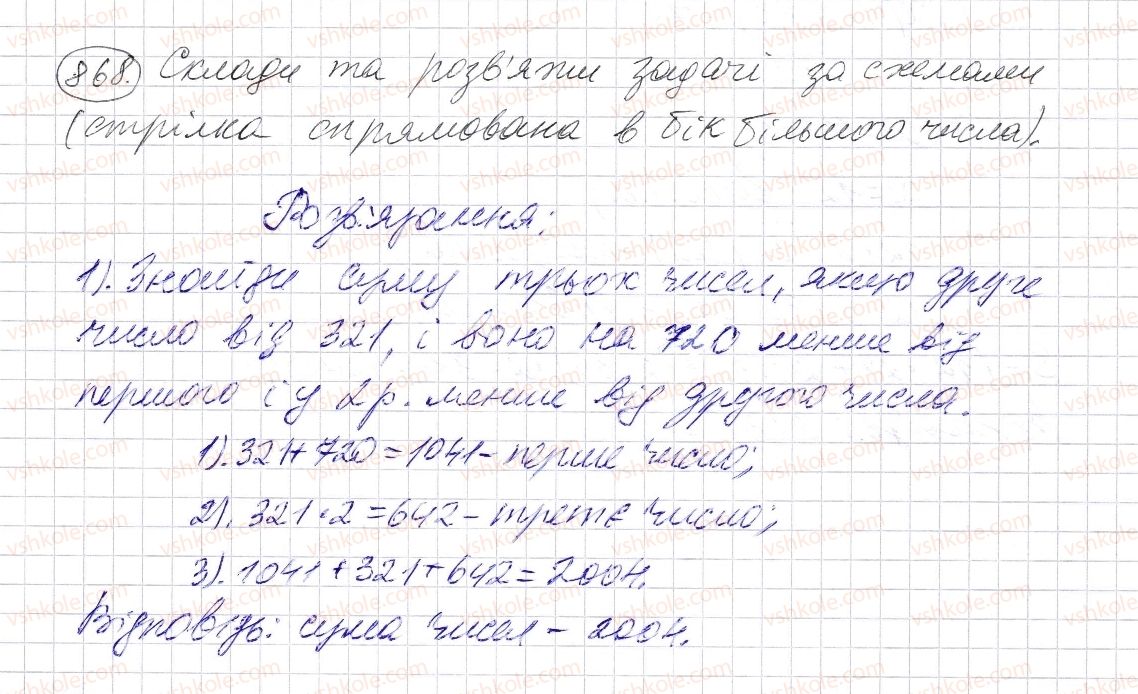 868. Склади та розв'яжи задачі за схемами
(стрілка спрямована в бік більшого числа).
Розв'язання:
1). Знайди суму трьох чисел, якщо друге
число від 321, і воно на 720 менше від
першого і у 2 р. менше від другого числа.
1). 321+720=1041- перше число;
2). 321·2=642- третє число;
3). 1041+321+642=2004.
Відповідь: сума чисел - 2004.